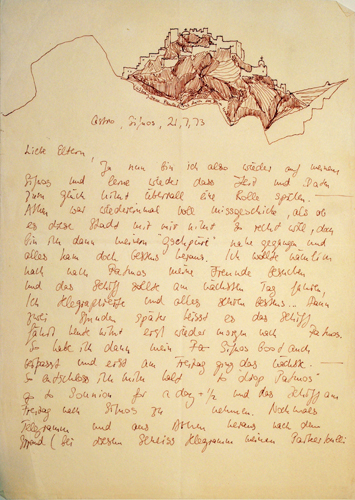 Castro, Sifnos, 21.7.73
Liebe Eltern,
Ja nun bin ich also wieder auf meinem
Sifnos und lerne wieder dass Zeit und Daten
zum Glück nicht überall eine Rolle spielen.
Athen war wiedereinmal voll missgeschicke, als ob
es diese Stadt mit mir nicht so recht will, doch
bin ich dann meinem "Gschpüri" nahe gegangen und
alles kam doch bestens heraus. Ich wollte nämlich
noch nach Patmos meine Freunde besuchen
und das Schiff sollte am nächsten Tag fahren,
Ich telegraphierte und alles schien bestens... Dann
zwei Stunden später heisst es das Schiff
fährt heute nicht erst wieder morgen nach Patmos.
So habe ich dann mein Sifnos Boot auch
verpasst und erst am Freitag ging das nächste.
So entschloss ich mich halt to "drop Patmos"
go to Sounion for a day + 1/2 und das Schiff am
Freitag nach Sifnos zu nehmen. Nochmals
Telegramm und aus Athen heraus nach dem
(bei diesem Scheiss Telegramm meinen